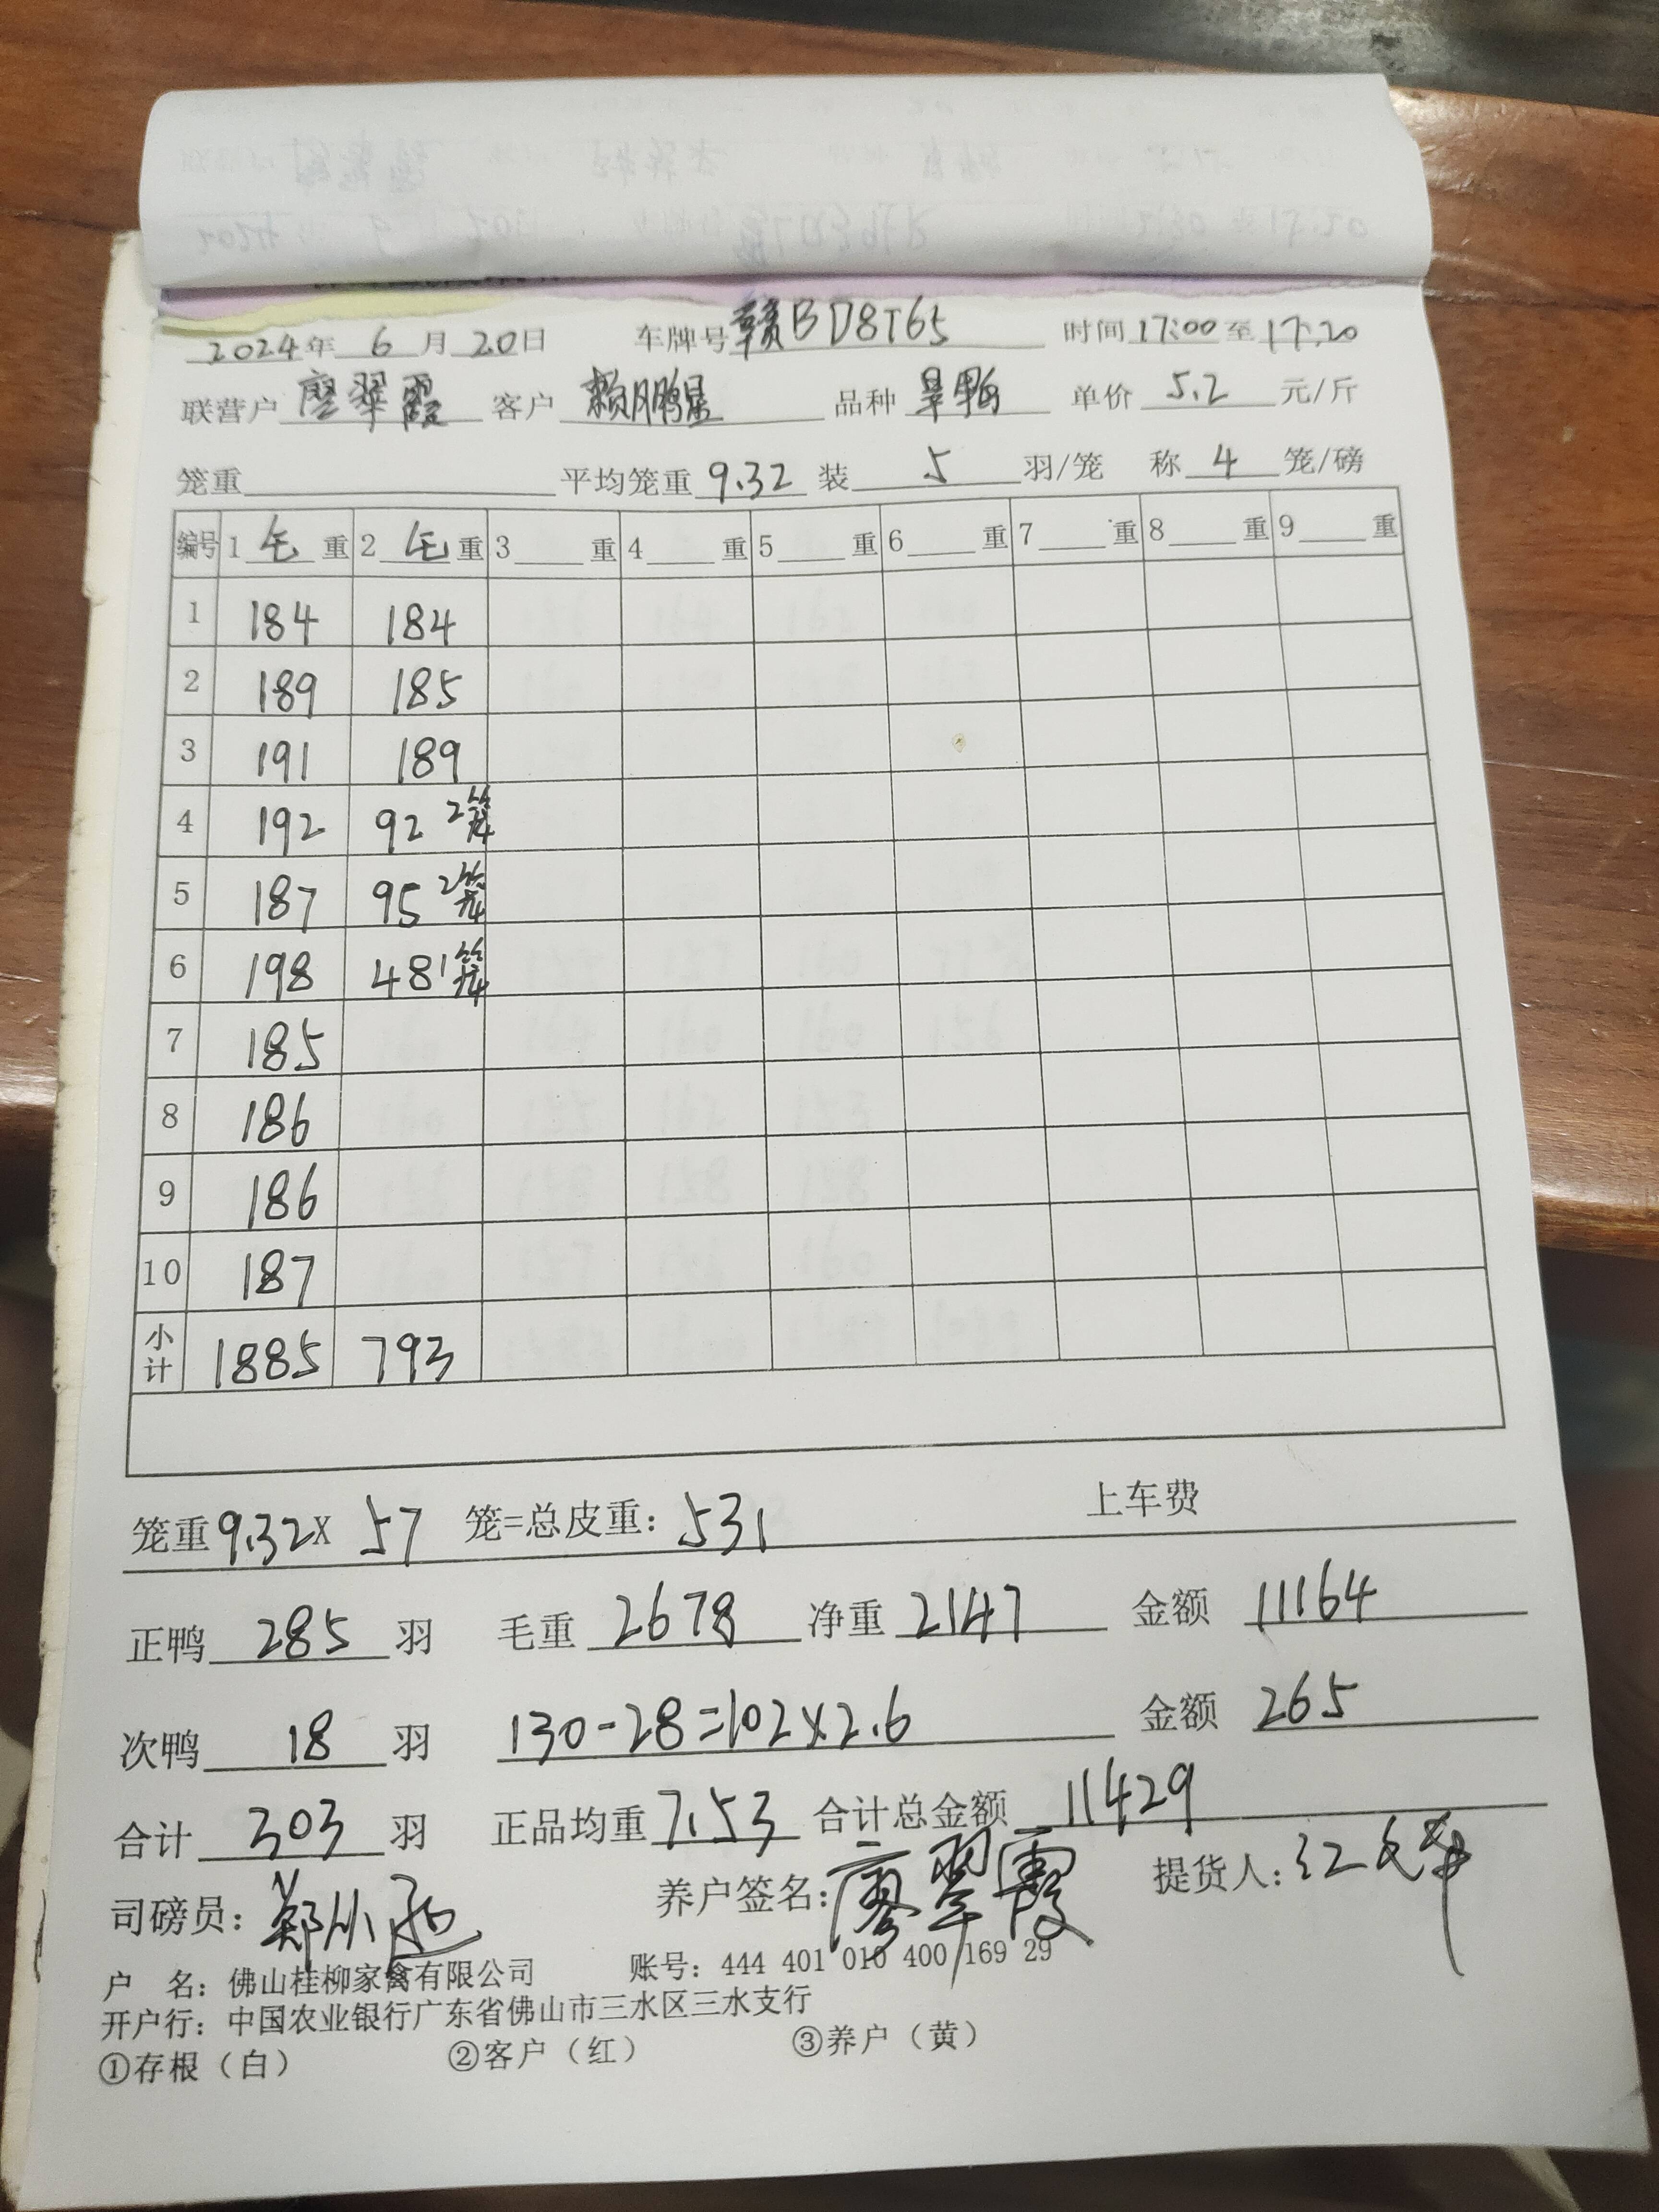 2024年 6 月 20日 车牌号 赣BD8T65 时间 17:00 至 17:20
联营户 廖翠霞 客户 赖鹏星 品种 旱鸭 单价 5.2 元/斤
笼重 平均笼重 9.32 装 5 羽/笼 称 4 笼/磅
编号 1 毛 重 2 毛 重 3 重 4 重 5 重 6 重 7 重 8 重 9 重
1 184 184
2 189 185
3 191 189
4 192 92 2笼
5 187 95 2笼
6 198 48 1笼
7 185
8 186
9 186
10 187
小计 1885 793
笼重 9.32 x 57 笼=总皮重: 531 上车费
正鸭 285 羽 毛重 2678 净重 2147 金额 11164
次鸭 18 羽 130-28=102x2.6 金额 265
合计 303 羽 正品均重 7.53 合计总金额 11429
司磅员: 养户签名: 廖翠霞 提货人:
户 名: 佛山桂柳家禽有限公司 账号: 444 401 010 400 169 29
开户行: 中国农业银行广东省佛山市三水区三水支行
①存根（白） ②客户（红） ③养户（黄）